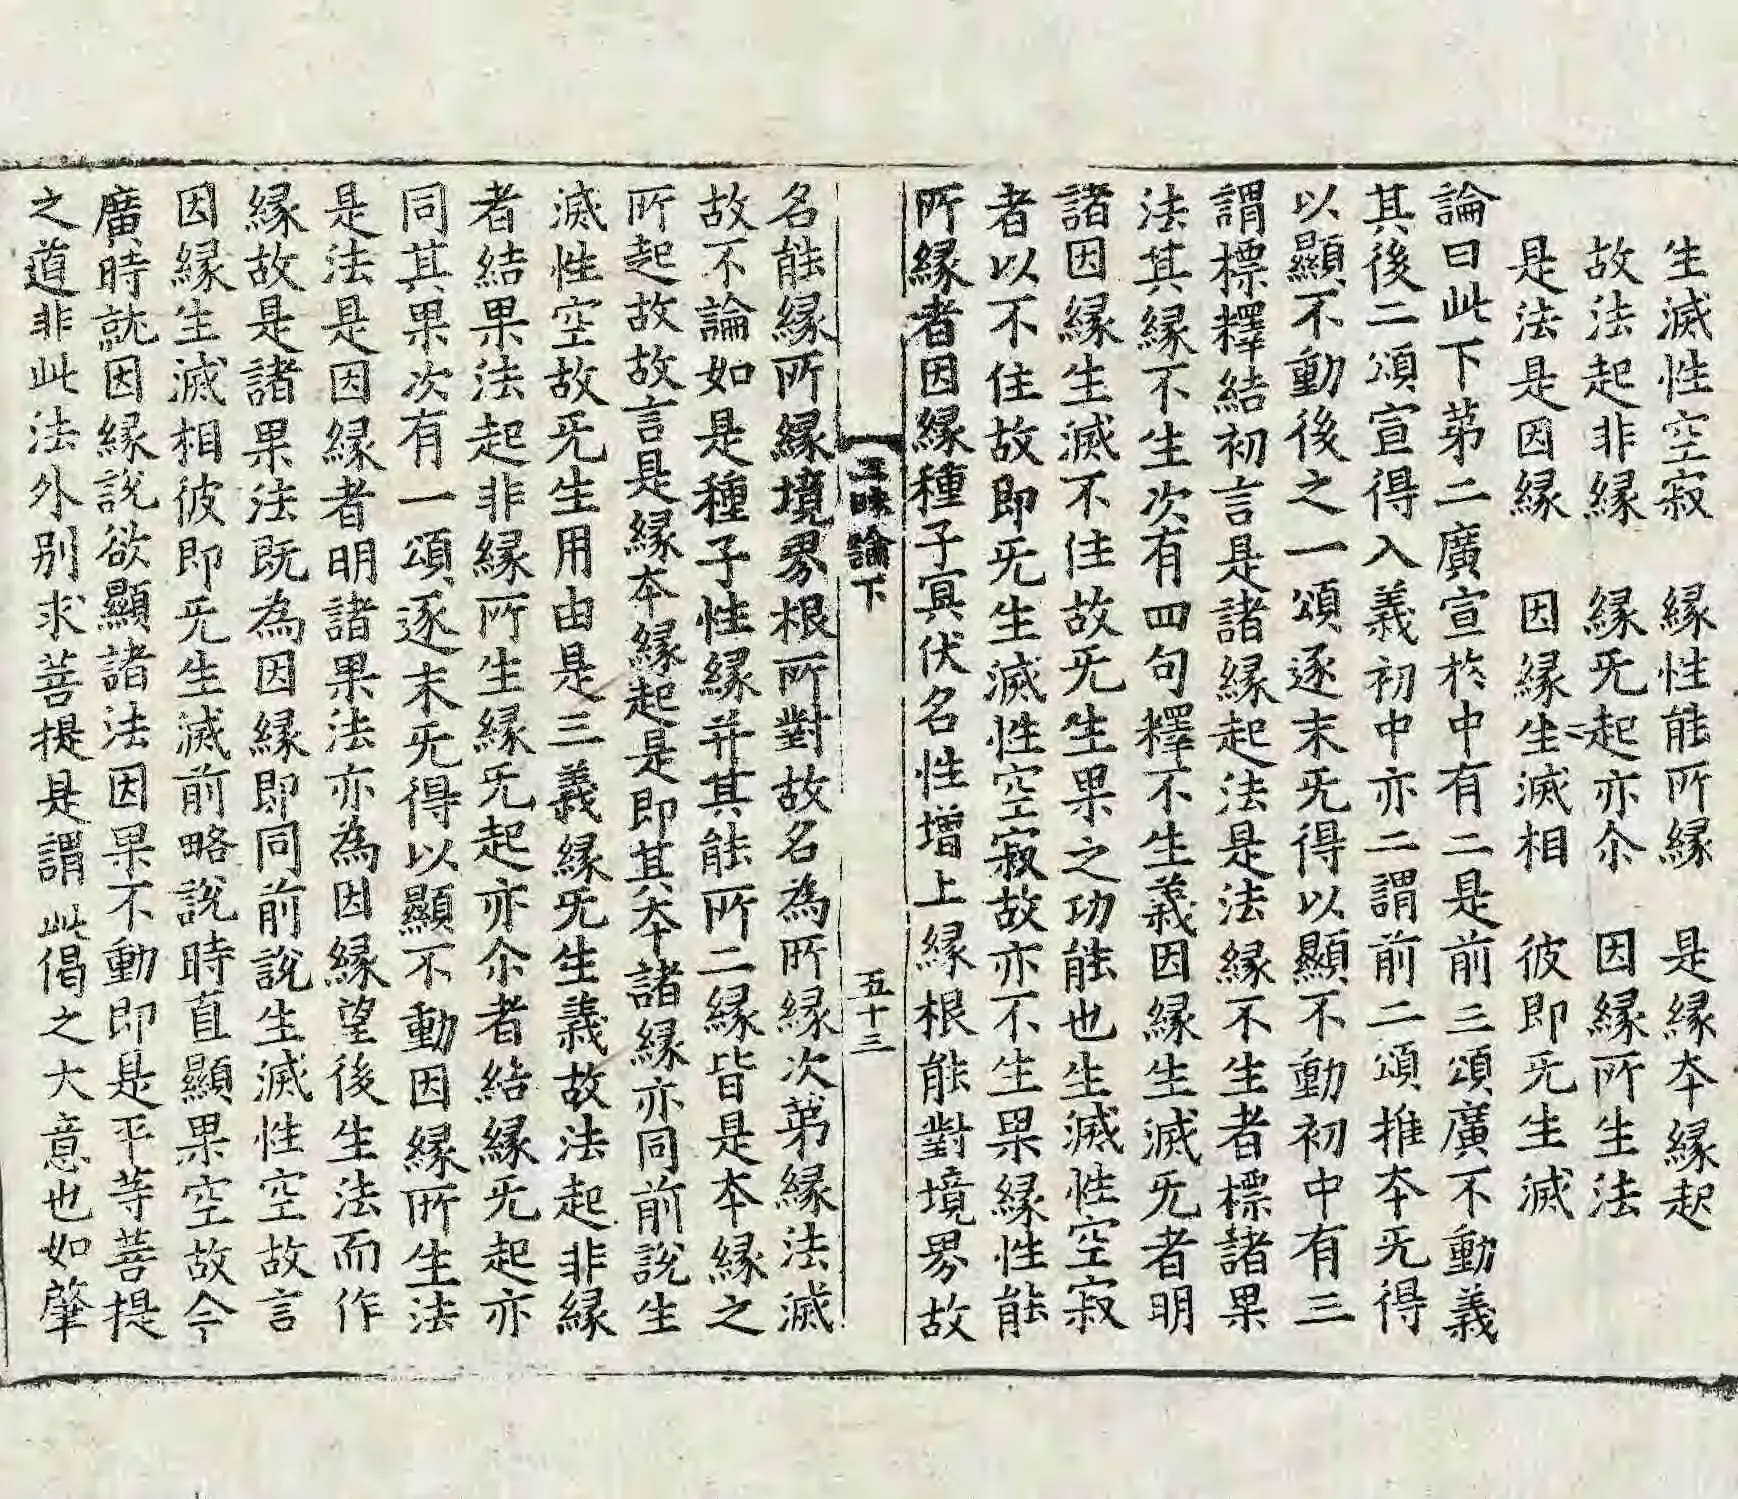 生滅性空寂　緣性能所緣　是緣夲緣起
故法起非緣　緣旡起亦尒　因緣所生法
是法是因緣　因緣生滅相　彼即旡生滅
論曰此下苐二廣宣於中有二是前三頌廣不動義
其後二頌宣得入義初中亦二謂前二頌推夲旡得
以顯不動後之一頌逐末旡得以顯不動初中有三
謂標釋結初言是諸緣起法是法緣不生者標諸果
法其緣不生次有四句釋不生義因緣生滅旡者明
諸因緣生滅不住故旡生果之功能也生滅性空寂
者以不住故即旡生滅性空寂故亦不生果緣性能
所緣者因緣種子冥伏名性增上緣根能對境界故
三昧論下　五十三
名能緣所緣境界根所對故名為所緣次苐緣法滅
故不論如是種子性緣并其能所二緣皆是夲緣之
所起故故言是緣夲緣起是即其夲諸緣亦同前說生
滅性空故旡生用由是三義緣旡生義故法起非緣
者結果法起非緣所生緣旡起亦尒者結緣旡起亦
同其果次有一頌逐末旡得以顯不動因緣所生法
是法是因緣者明諸果法亦為因緣望後生法而作
緣故是諸果法既為因緣即同前說生滅性空故言
因緣生滅相彼即旡生滅前略說時直顯果空故今
廣時就因緣說欲顯諸法因果不動即是平等菩提
之道非此法外別求菩提是謂此偈之大意也如肇